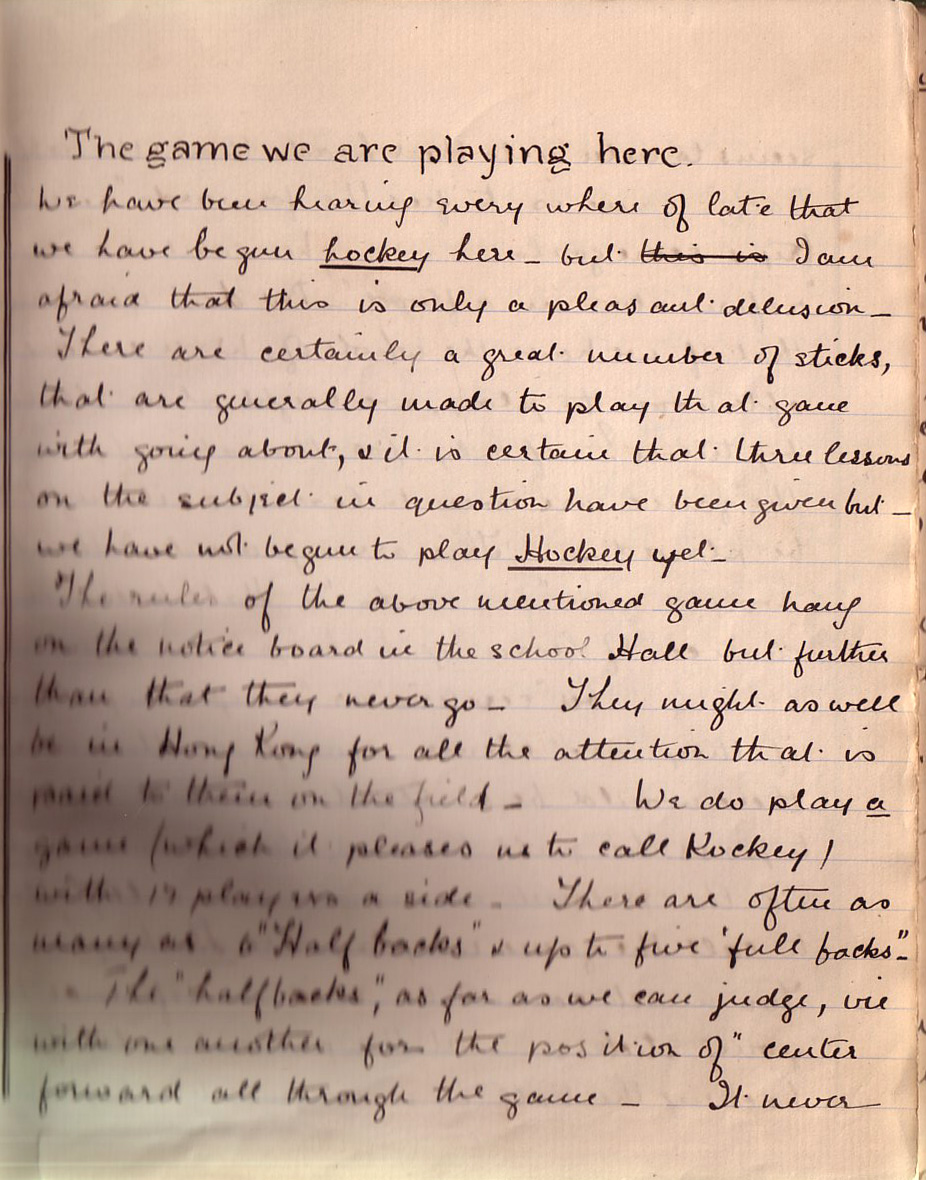 The game we are playing here.
We have been hearing every where of late that
we have begun hockey here _ but ~~this is~~ I am
afraid that this is only a pleasant delusion _
There are certainly a great number of sticks,
that are generally made to play that game
with going about, & it is certain that three lessons
on the subject in question have been given but _
we have not begun to play Hockey yet _
The rules of the above mentioned game hang
on the notice board in the school Hall but further
than that they never go _ They might as well
be in Hong Kong for all the attention that is
paid to them on the field _ We do play a
game (which it pleases us to call Hockey)
with players a side _ There are often as
many as 6 "Half backs" & up to five "full backs" _
The "half backs", as far as we can judge, vie
with one another for the position of "center
forward all through the game _ It never